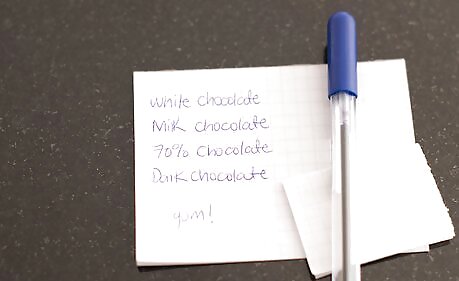 White chocolate
Milk chocolate
70% chocolate
Dark chocolate
yum!